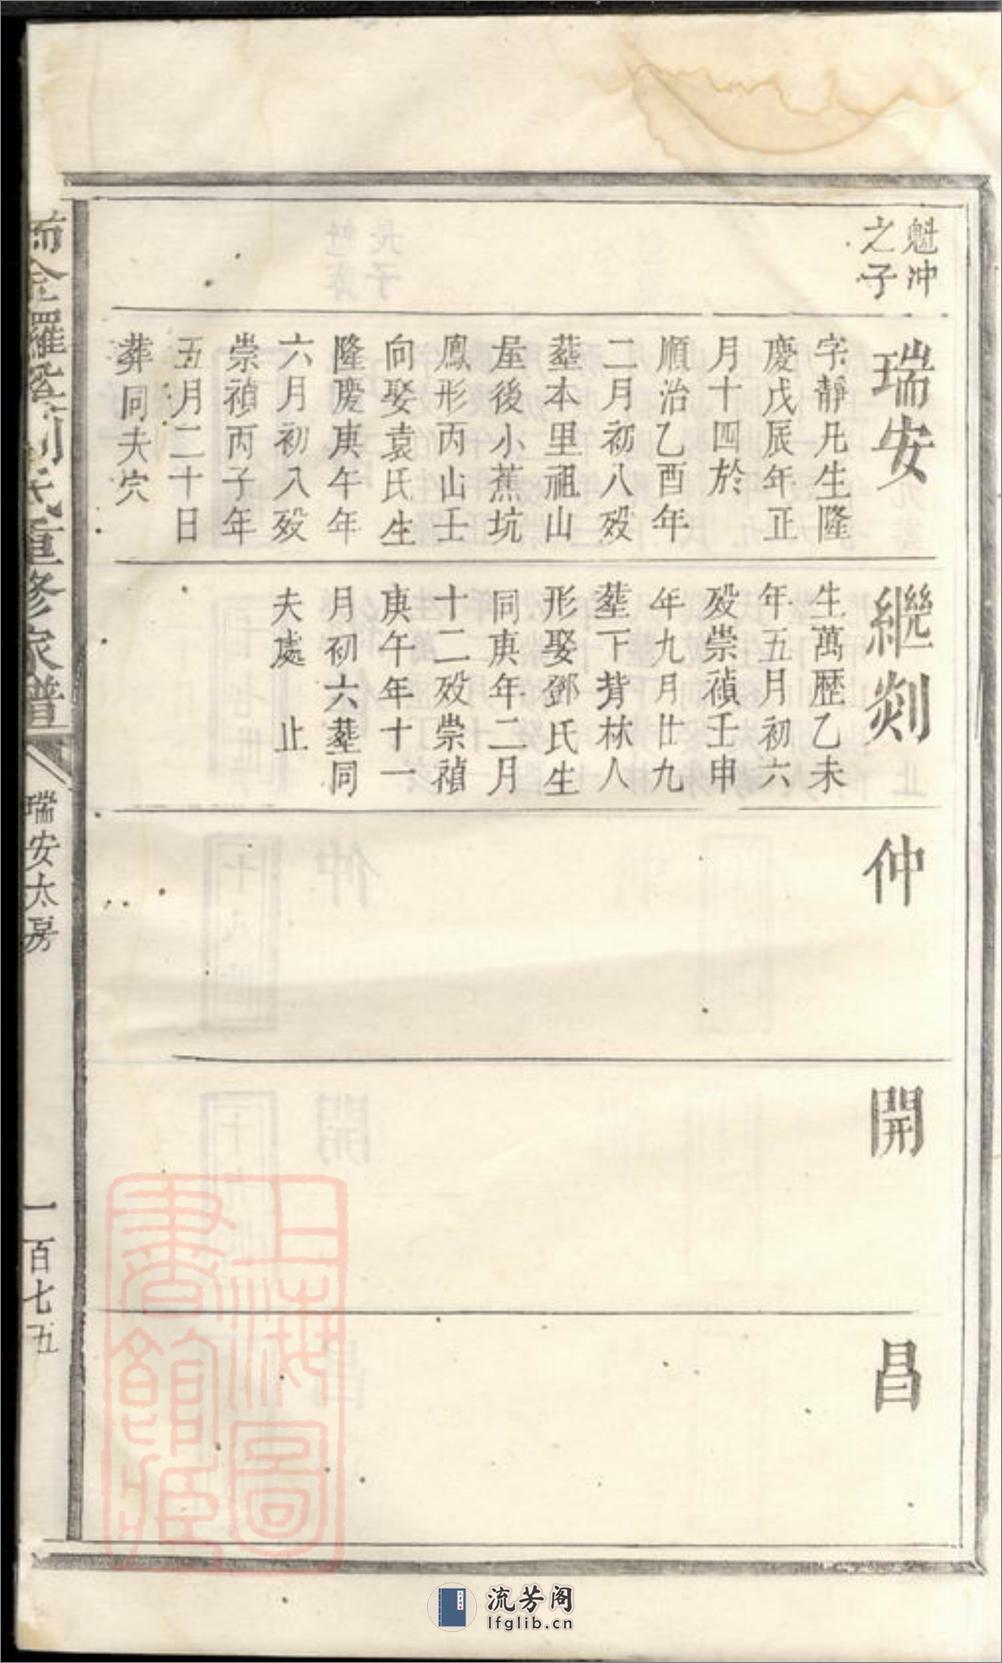 魁冲
之子
瑞安
字靜凡生隆
慶戊辰年正
月十四於
順治乙酉年
二月初八殁
塟本里祖山
屋後小蕉坑
鳳形丙山壬
向娶袁氏生
隆慶庚午年
六月初入殁
崇禎丙子年
五月二十日
葬同夫穴
繼剡
生萬歷乙未
年五月初六
殁崇禎壬申
年九月廿九
塟下背林人
形娶鄧氏生
同庚年二月
十二殁崇禎
庚午年十一
月初六塟同
夫處 止
仲
開
昌
氏重修家譜
瑞安太房
一百七五
上海圖書館藏
流芳阁
lfglib.cn